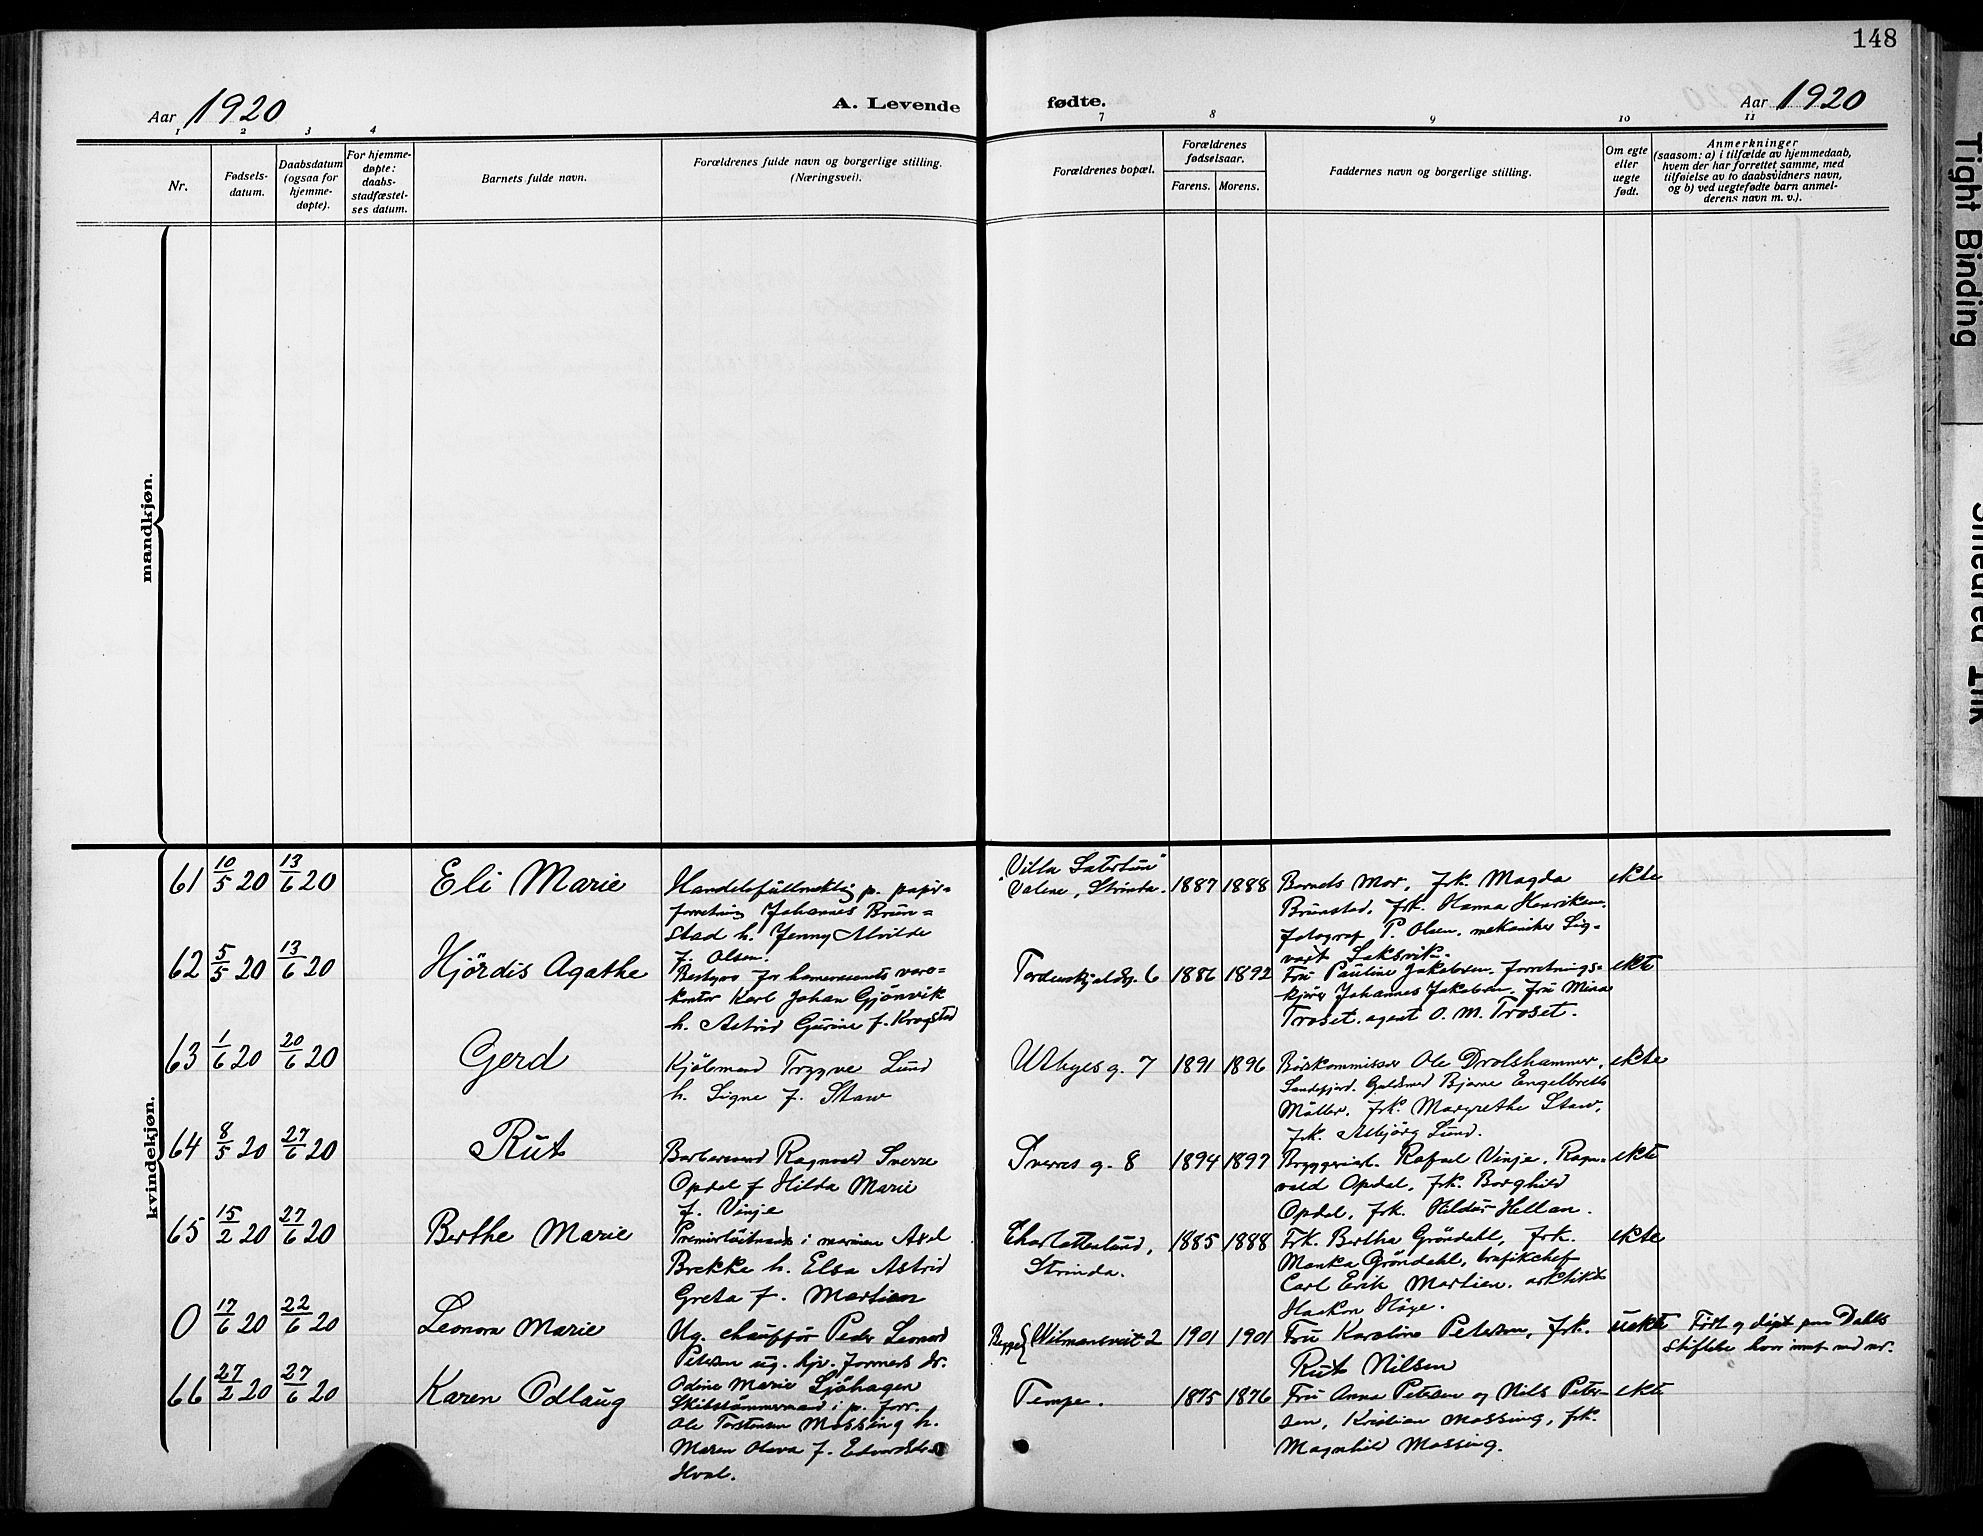 148
Aar 1920
A. Levende
fødte.
Aar 1920
1 2 3 4 7 8 9 10 11
Nr.
Fødsels-
datum.
Daabsdatum
(ogsaa for
hjemme-
døpte).
For hjemme-
døpte:
daabs-
stadfæstel-
ses datum.
Barnets fulde navn.
Forældrenes fulde navn og borgerlige stilling.
(Næringsvei).
Forældrenes bopæl.
Forældrenes
fødselsaar.
Farens. Morens.
Faddernes navn og borgerlige stilling.
Om egte
eller
uegte
født.
Anmerkninger
(saasom: a) i tilfælde av hjemmedaab,
hvem der har forrettet samme, med
tilføielse av to daabsvidners navn,
og b) ved uegtefødte barn anmel-
derens navn m. v.).
mandkjøn.
kvindekjøn.
61 10/5 20 13/6 20 Eli Marie
Handelsfullmektig p. papir-
forretning Johannes Brun-
stad h. Jenny Alvilde
f. Olsen.
Villa
Valene, Strinda. 1887 1888
Barnets Mor, frk. Magda
Brunstad, frk. Hanna Henriksen.
fotograf P. Olsen, mekaniker Sig-
vart Saksvik.
ekte
62 5/5 20 13/6 20 Hjørdis Agathe
Bestyrer for
kontor Karl Johan Gjønvik
h. Astrid Gurine f. Krogstad
Tordenskjoldsg. 6 1886 1892
Fru Pauline Jakobsen. forretnings-
kjører Johannes Jakobsen, fru Mina
Troset. agent O. M. Troset.
ekte
63 1/6 20 20/6 20 Gerd
Kjøbmand Trygve Lund
h. Signe f. Staw
g. 7 1891 1896
Ole Drolshammer,
Sandefjord. Guldsmed Bjarne Engelbreth
Møller. frk. Margrethe Staw,
frk. Asbjørg Lund.
ekte
64 8/5 20 27/6 20 Rut
Barbersvend Ragnvald Sverre
Opdal f Hilda Marie
f. Vinje
Sverres g. 8 1894 1897
Bryggeriarb. Rafael Vinje. Ragn-
vald Opdal, frk. Borghild
Opdal, frk. Hildur Hellan.
ekte
65 15/2 20 27/6 20 Berthe Marie
Premierløitnant i marinen Axel
Brekke h. Elsa Astrid
Greta f. Martien
Charlottenlund,
Strinda. 1885 1888
Frk. Bertha Grøndahl, frk.
Manka Grøndahl, trafikchef
Carl Erik Martien. arkitekt
Haakon Høye.
ekte
0 17/6 20 22/6 20 Leonora Marie
Ug. chauffør Peder Leonard
Petersen ug. hjv. formers dr.
Odine Marie Sjøhagen
Begge Wilmansveit 2 1901 1901
Fru Karoline Petersen, frk.
Rut Nilsen
uekte
Født og døpt paa Dahls
Stiftelse hvor innf med nr.
66 27/2 20 27/6 20 Karen Odlaug
Skibstømmermand i p. forr.
Ole Torstensen Mossing h.
Maren Olava f. Edvardsdr.
Hval.
Tempe. 1875 1876
Fru Anna Petersen og Nils Peter-
sen, Kristian Mossing, frk.
Magnhild Mossing.
ekte
Tight Binding
Smeared Ink